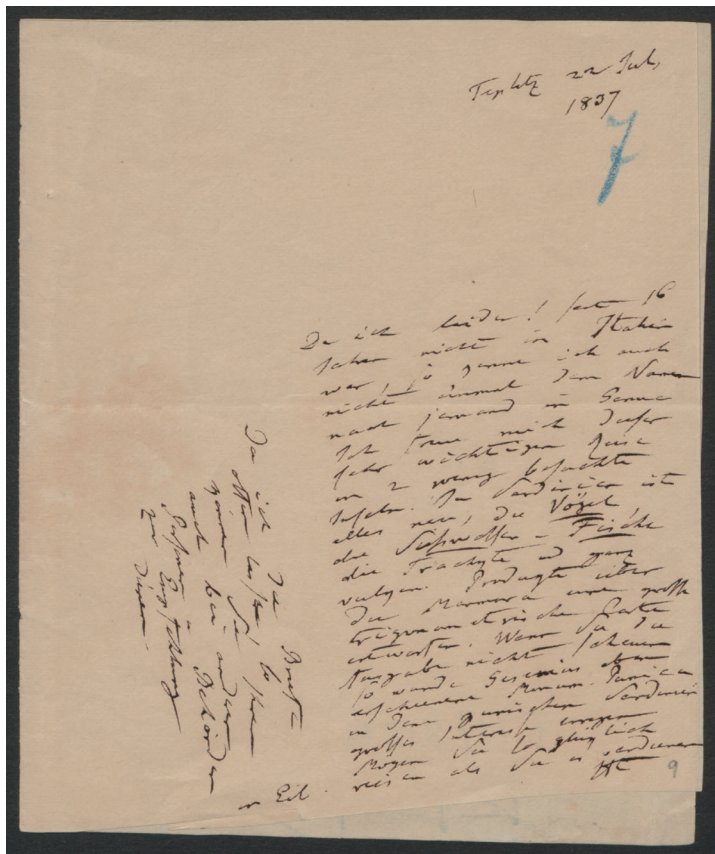 Teplitz 22 Jul,
1837
7
Da ich leider! seit 16
Jahren nicht in Italien
war, so kenne ich auch
nicht einmal dem Namen
nach jemand in Genua
Ich freue mich dieser
sehr wichtigen Reise
in 2 wenig besuchte
Inseln. In Sardinien ist
alles neu, die Vögel
die Süßwasser-Fische
die Trachyte und ganz
vulgen. Produkte über
die Marmora eine große
trigonometrische Karte
erwarten. Wenn Sie die
Ausgabe nicht scheuen
so würde Gesenius eben
erschienene Monum. Punica
in dem punischen Sardinien
großes Interesse erregen
Mögen Sie so glücklich
reisen als Sie es verdienen
in Eil. AHt
9
Da ich den Brief
offen lasse, so
können Sie ihn
auch bei anderen Behörden
zur Empfehlung
dienen.